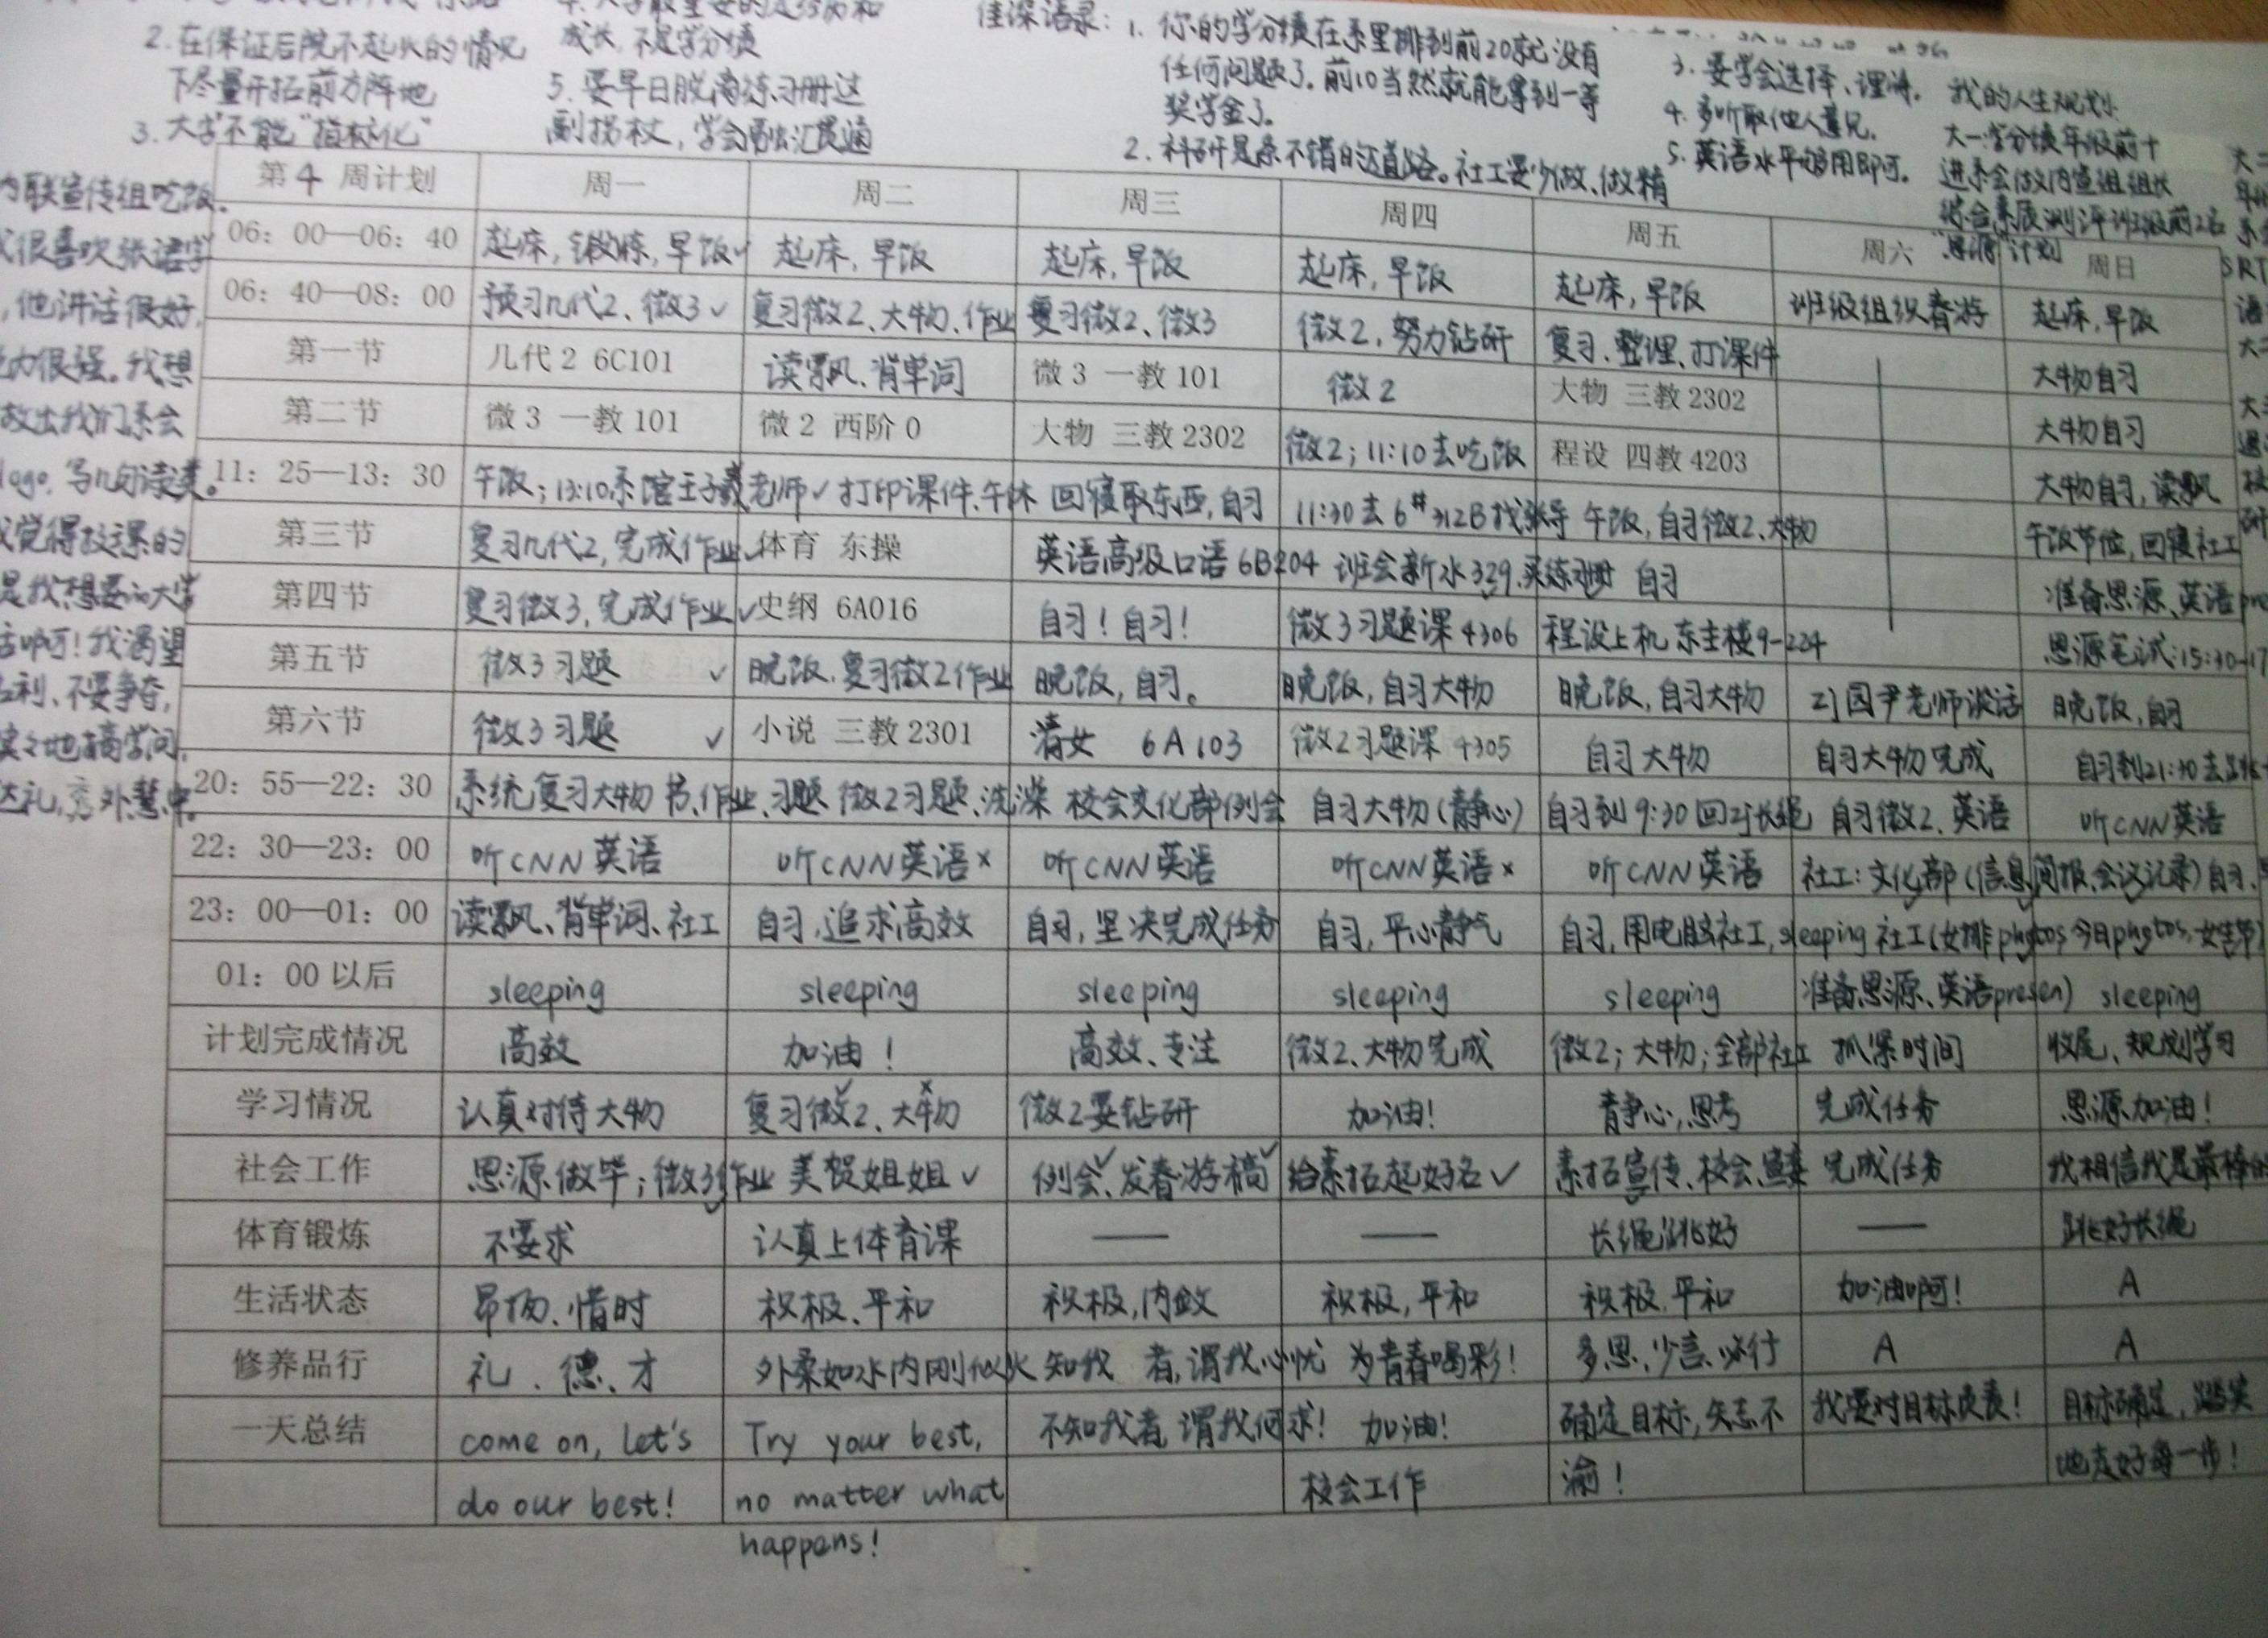 2. 在保证后院不起火的情况
下尽量开拓前方阵地
3. 大学不能"指标化"
成长, 不是学分绩
5. 要早日脱离练习册这
副拐杖, 学会融汇贯通
佳深语录: 1. 你的学分绩在系里排到前20就没有
任何问题了. 前10当然就能拿到一等
奖学金了.
2. 科研是条不错的道路。社工要少做、做精
3. 要学会选择、理清.
4. 多听取他人意见.
5. 英语水平够用即可.
我的人生规划:
大一:学分绩年级前十
进系会做内宣组组长
综合素质测评班级前2名
"思源"计划
内联宣传组吃饭.
他讲话很好,
力很强。我想
做出我们系会
logo, 写几句
觉得
是我想要的大学
活啊! 我渴望
名利、不要争夺,
地搞学问,
达礼, 秀外慧中.
第4周计划 周一 周二 周三 周四 周五 周六 周日
06: 00—06: 40 起床, 锻炼, 早饭✓ 起床, 早饭 起床, 早饭 起床, 早饭 起床, 早饭 班级组织春游 起床, 早饭
06: 40—08: 00 预习几代2、微3 ✓ 复习微2、大物、作业 复习微2、微3 微2, 努力钻研 复习、整理、打课件 大物自习
第一节 几代2 6C101 读飘、背单词 微3 一教101 微2 大物 三教2302 大物自习
第二节 微3 一教101 微2 西阶0 大物 三教2302 微2; 11:10去吃饭 程设 四教4203 大物自习, 读飘
11: 25—13: 30 午饭; 13:10系馆王子羲老师✓ 打印课件、午休 回寝取东西, 自习 11:30去6#312B找张导 午饭, 自习微2、大物 午饭节位, 回寝社工
第三节 复习几代2, 完成作业✓ 体育 东操 英语高级口语6B204 班会新水329, 买练习册 自习 准备思源、英语pre
第四节 复习微3, 完成作业✓ 史纲 6A016 自习! 自习! 微3习题课4306 程设上机 东主楼9-224 思源笔试:15:30-17
第五节 微3习题 ✓ 晚饭, 复习微2作业 晚饭, 自习。 晚饭, 自习大物 晚饭, 自习大物 习园尹老师谈话 晚饭, 自习
第六节 微3习题 ✓ 小说 三教2301 清女 6A103 微2习题课 4305 自习大物 自习大物完成 自习到21:30去跳
20: 55—22: 30 系统复习大物 书、作业、习题 微2习题、洗澡 校会文化部例会 自习大物(静心) 自习到9:30回习长绳 自习微2、英语 听CNN英语
22: 30—23: 00 听CNN英语 听CNN英语× 听CNN英语 听CNN英语× 听CNN英语 社工: 文化部(信息简报、会议记录) 自习
23: 00—01: 00 读飘、背单词、社工 自习, 追求高效 自习, 坚决完成任务 自习, 平心静气 自习, 用电脑社工, sleeping 社工(女排photos 今日photos, 女生节)
01: 00以后 sleeping sleeping sleeping sleeping sleeping 准备思源、英语presen) sleeping
计划完成情况 高效 加油! 高效、专注 微2、大物完成 微2; 大物; 全部社工 抓紧时间 收尾、规划学习
学习情况 认真对待大物 复习微2✓、大物× 微2要钻研 加油! 静心, 思考 完成任务 思源加油!
社会工作 思源做毕; 微3作业 美贺姐姐✓ 例会✓、发春游稿✓ 给素拓起好名✓ 素拓宣传、校会、宣案 完成任务 我相信我是最棒的
体育锻炼 不要求 认真上体育课 —— —— 长绳跳好 —— 跳好长绳
生活状态 昂扬、惜时 积极、平和 积极, 内敛 积极, 平和 积极, 平和 加油啊! A
修养品行 礼、德、才 外柔如水内刚似火 知我者, 谓我心忧 为青春喝彩! 多思、少言、必行 A A
一天总结 come on, let's Try your best, 不知我者, 谓我何求! 加油! 确定目标, 矢志不 我要对目标负责! 目标确定, 踏实
do our best! no matter what 校会工作 渝! 地走好每一步!
happens!